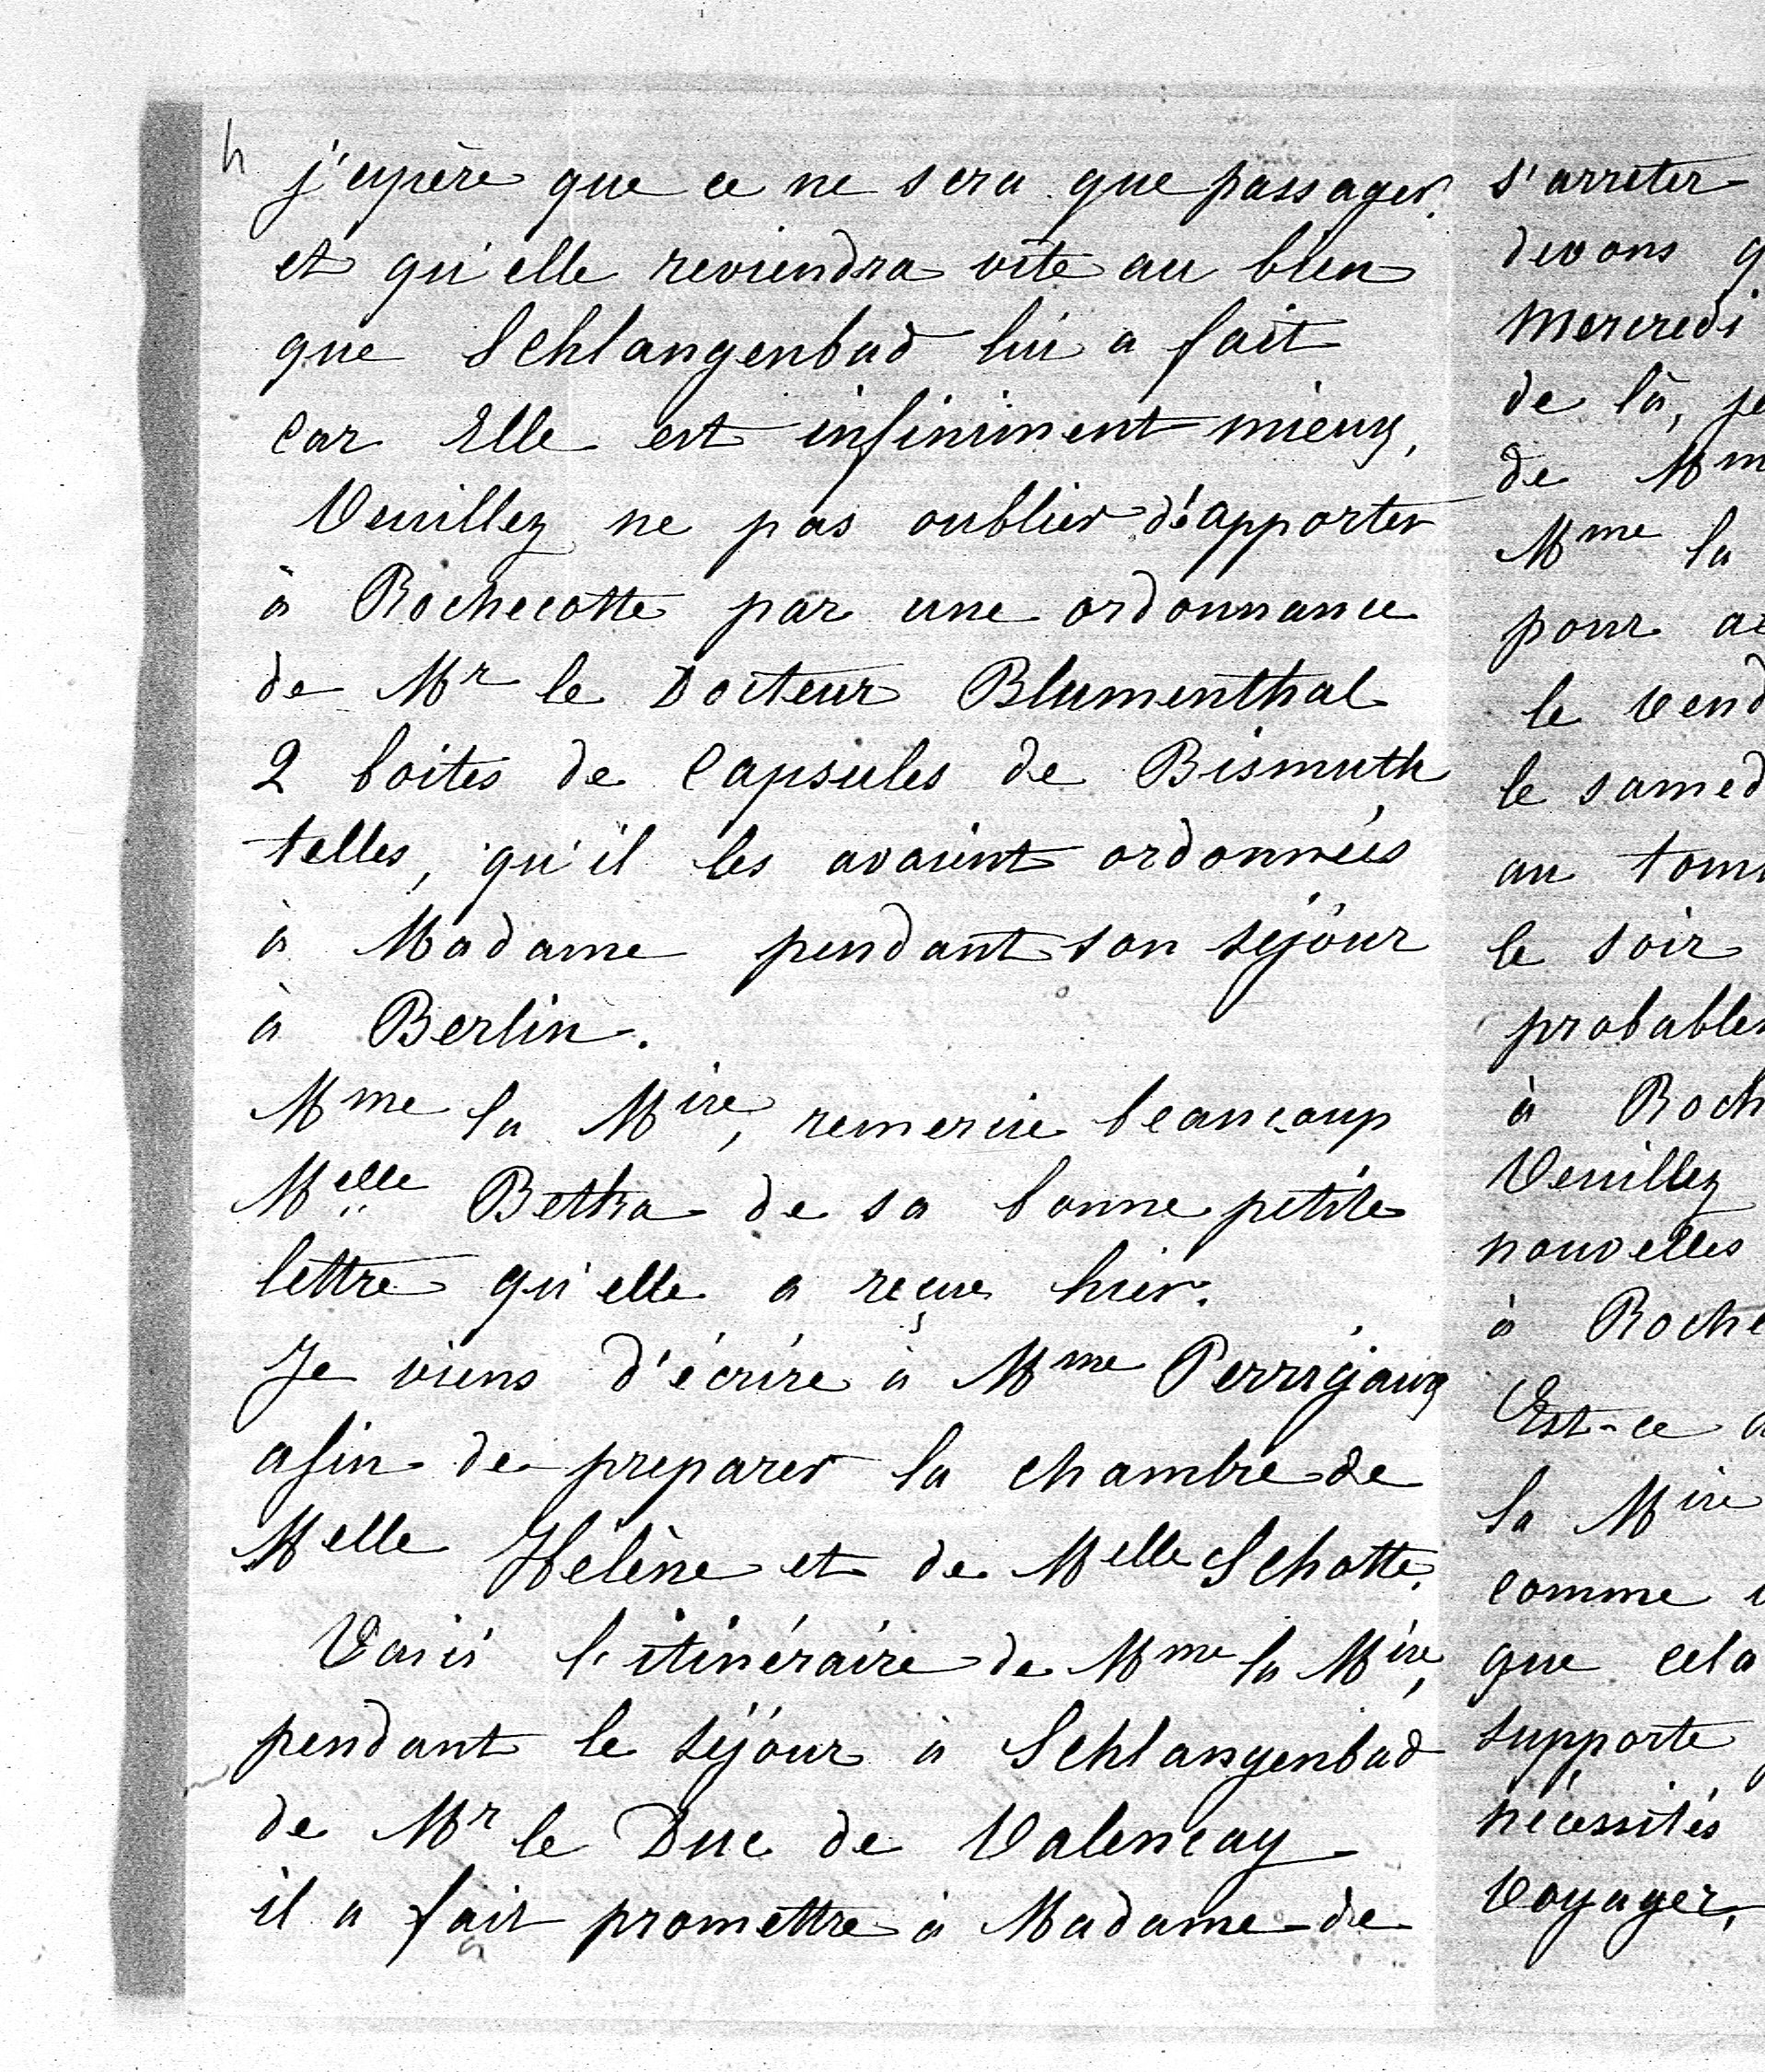 j'espère que ce ne sera que passager.
et qu'elle reviendra vite au bien
que Schlangenbad lui a fait
car Elle est infiniment mieux,
Veuillez ne pas oublier d'apporter
à Rochecotte par une ordonnance
de Mr le Docteur Blumenthal
2 boites de Capsules de Bismuth
telles, qu'il les avaient ordonnées
à Madame pendant son séjour
à Berlin.
Mme la Mise, remercie beaucoup
Melle Betka de sa bonne petite
lettre qu'elle a reçue hier.
Je viens d'écrire à Mme Perrigaux
afin de préparer la chambre de
Melle Hélène et de Melle Schotte.
Voici l'itinéraire de Mme la Mise,
pendant le séjour à Schlangenbad
de Mr le Duc de Valencay
il a fait promettre à Madame de
s'arreter
devons
Mercredi
de là,
de
Mme la
pour
le
le
au
le soir
à
Veuillez
nouvelles
à
Est-ce
la Mise
comme
que cela
supporte
nécessités
Voyager,